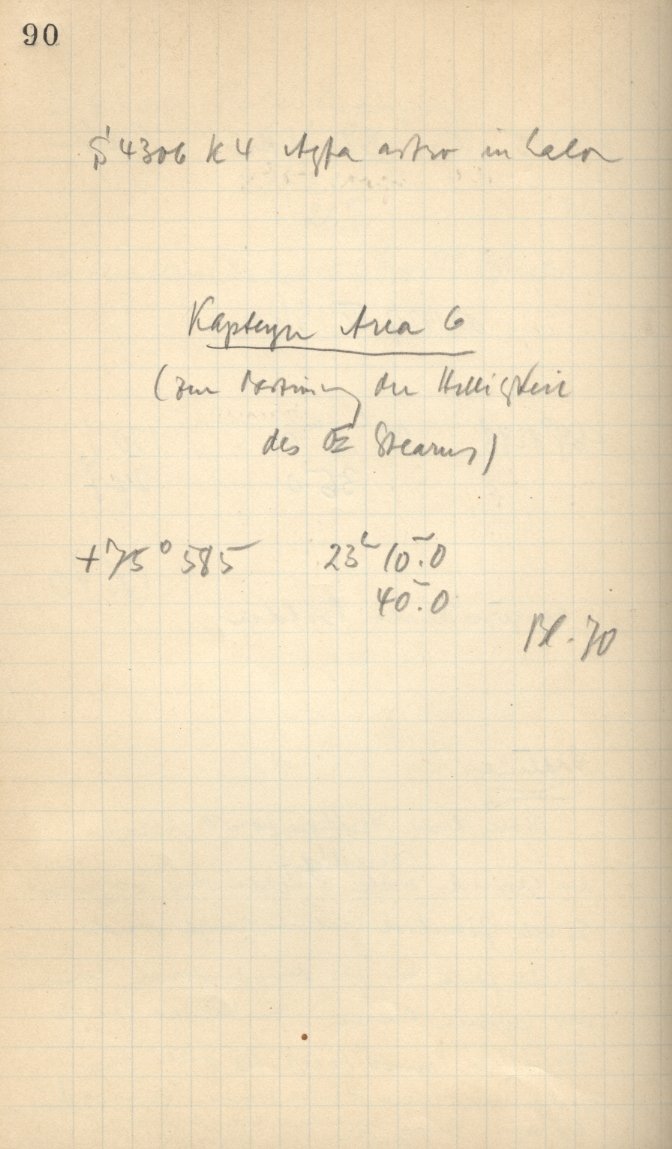 90
4306 K4 Agfa astro in Calor
Kapteyn Area 6
(zur Bestimmung der Helligkeit
des Stearns)
+75° 585 23h 10m.0
40m.0
Bl. 70